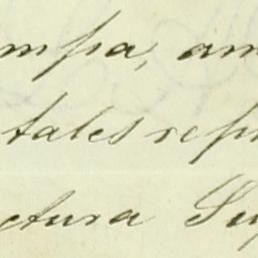 mpa, am
tales repr
ctura Sup